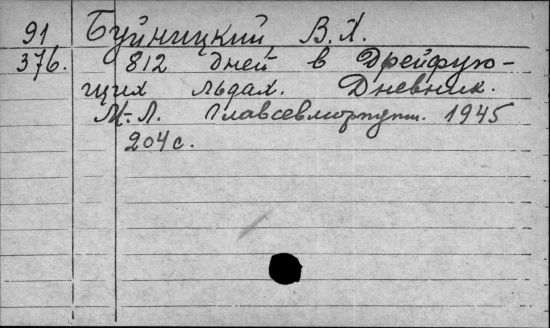 91 Буйницкий, В.Х.
376. 812 дней в Дрейфую-
щих льдах. Дневник.
М.-Л. Главсевморпути. 1945
204 с.